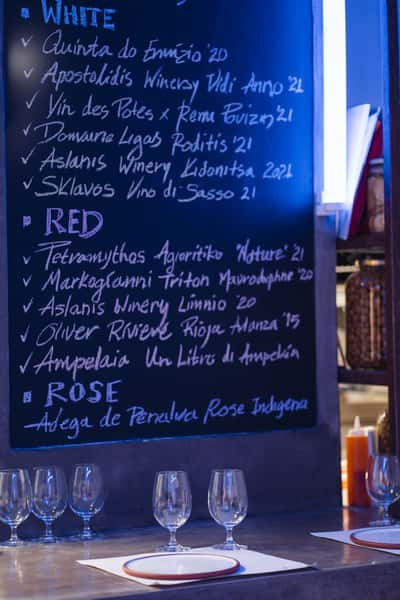 WHITE
✓ Quinta do Ermizio '20
✓ Apostolidis Winery Vidi Anno '21
✓ Vin des Potes x Remi Poujas '21
✓ Domaine Ligas Roditis '21
✓ Aslanis Winery Kidonitsa 2021
✓ Sklavos Vino di Sasso '21
RED
✓ Petramythos Agioritiko "Nature" '21
✓ Markogianni Triton Mavrodaphne '20
✓ Aslanis Winery Limnio '20
✓ Oliver Riviere Rioja Atanza '15
✓ Ampelaia Un Litro di Ampelaia
ROSE
– Adega de Penalva Rose Indigena